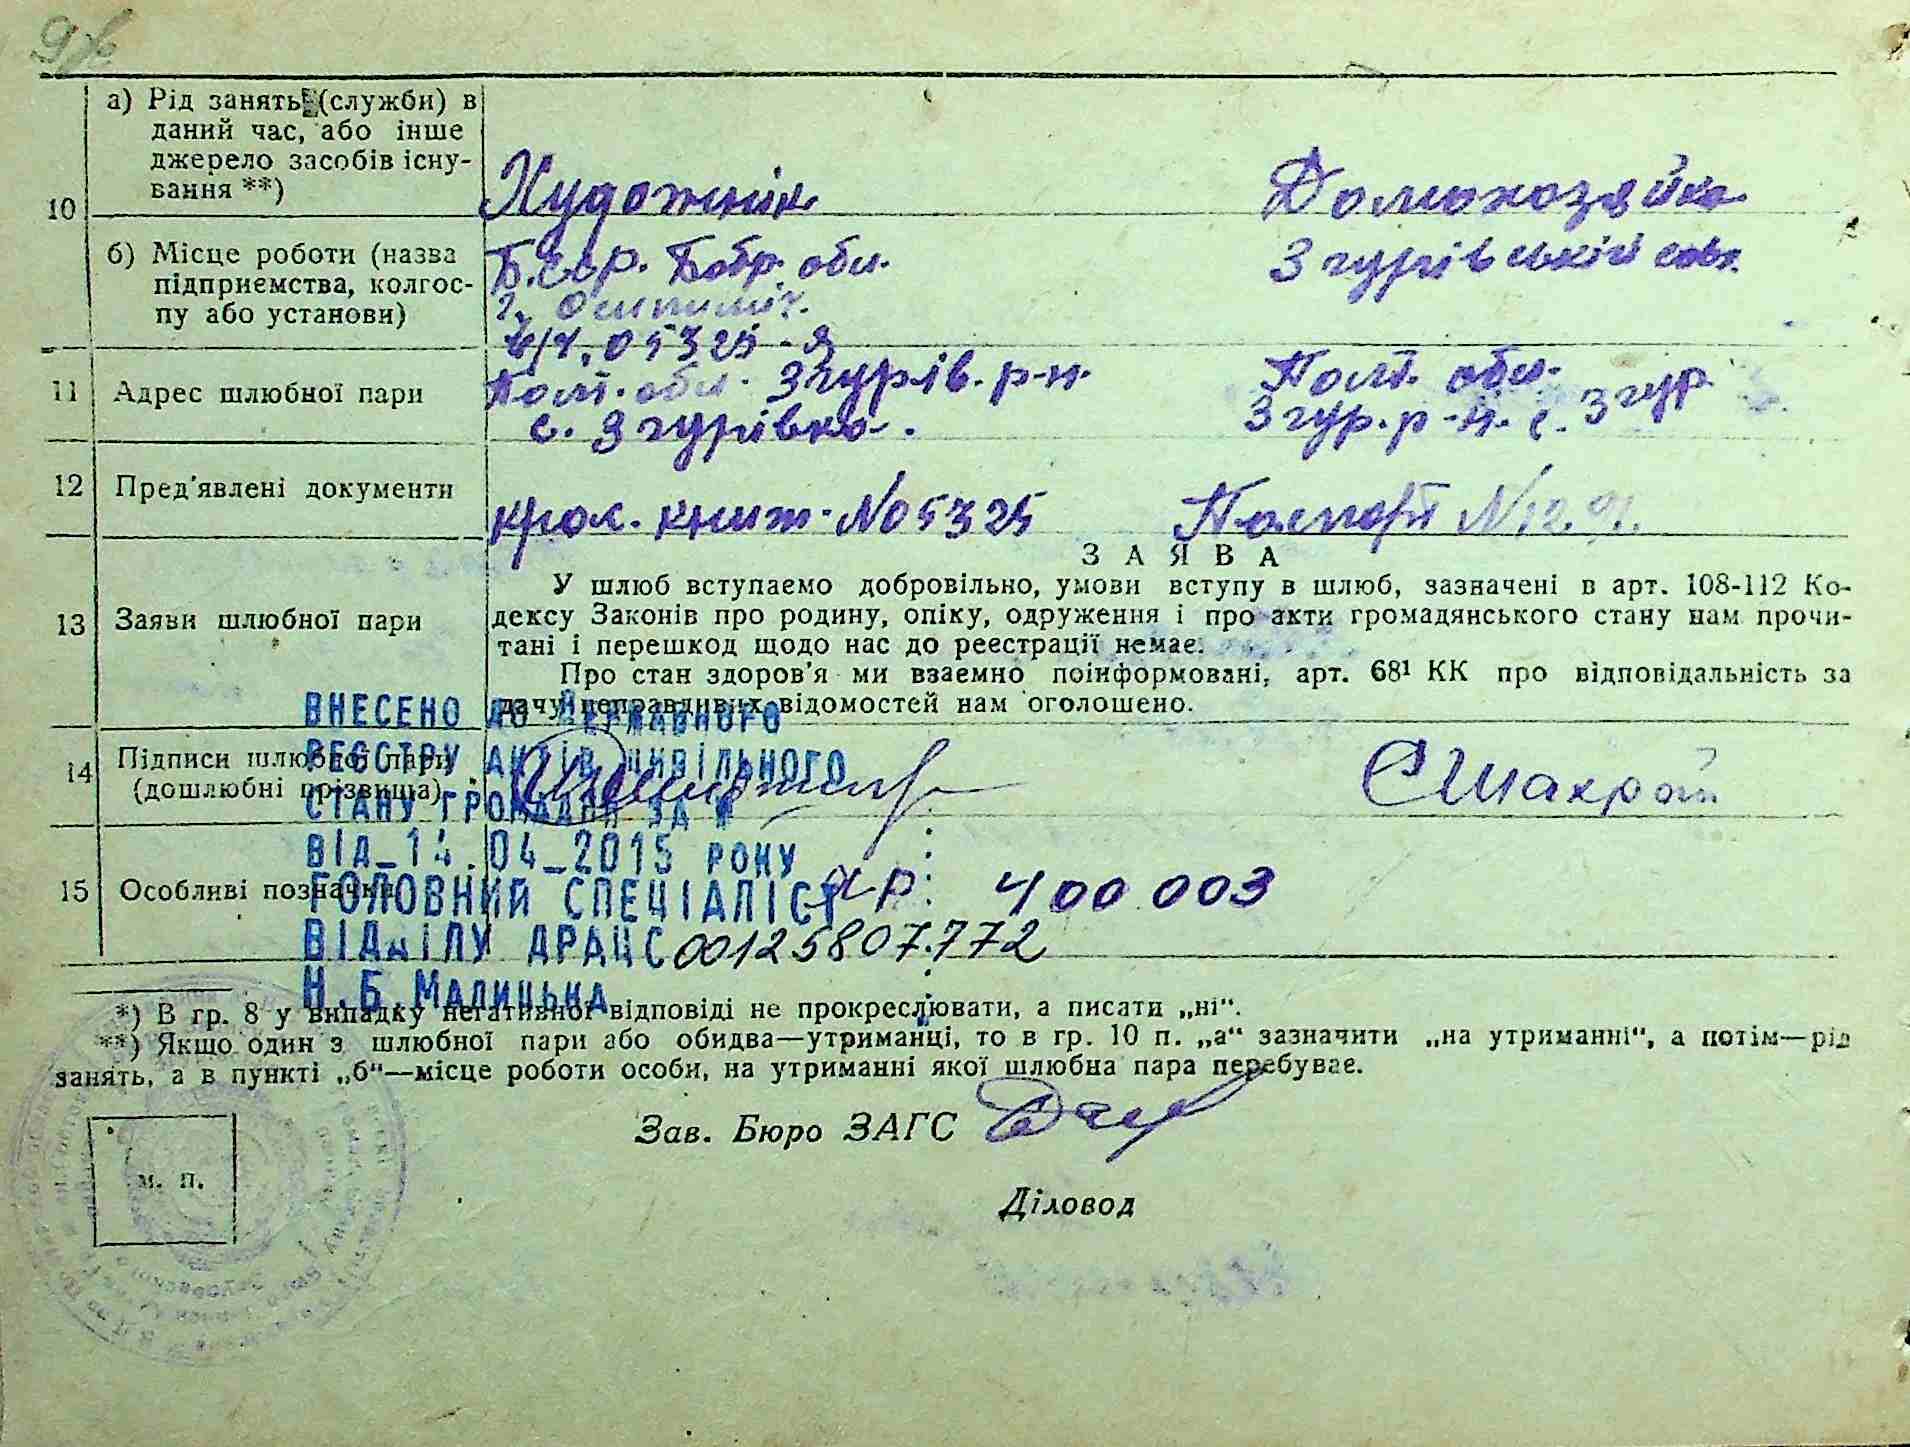 10
а) Рід занять (служби) в
даний час, або інше
джерело засобів існу-
вання **)
Художнік
Домохозяйка
б) Місце роботи (назва
підприємства, колгос-
пу або установи)
Б.ССР. Бобр. обл.
г. Осиповіч.
в/ч. 05325-Я
Згурівській
11 Адрес шлюбної пари
Полт. обл. Згурів. р-н.
с. Згурівка.
Полт. обл.
Згур. р-н. с. Згур
12 Пред'явлені документи
книж. №05325
Паспорт
З А Я В А
13 Заяви шлюбної пари
У шлюб вступаемо добровільно, умови вступу в шлюб, зазначені в арт. 108-112 Ко-
дексу Законів про родину, опіку, одруження і про акти громадянського стану нам прочи-
тані і перешкод щодо нас до реєстрації немає.
Про стан здоров'я ми взаємно поінформовані, арт. 68¹ КК про відповідальність за
дачу неправдивих відомостей нам оголошено.
14 Підписи шлюбної пари
(дошлюбні прізвища)
СШахрай
15 Особливі позначки
ВНЕСЕНО ДО ДЕРЖАВНОГО
РЕЄСТРУ АКТІВ ЦИВІЛЬНОГО
СТАНУ ГРОМАДЯН ЗА №
ВІД_14.04_2015 РОКУ
ГОЛОВНИЙ СПЕЦІАЛІСТ
ВІДДІЛУ ДРАЦС
Н.Б.МАЛИЦЬКА
400 003
00125807772
*) В гр. 8 у випадку негативної відповіді не прокреслювати, а писати „ні“.
**) Якщо один з шлюбної пари або обидва—утриманці, то в гр. 10 п. „а“ зазначити „на утриманні“, а потім—рід
занять, а в пункті „б“—місце роботи особи, на утриманні якої шлюбна пара перебуває.
Зав. Бюро ЗАГС
м. п.
Діловод